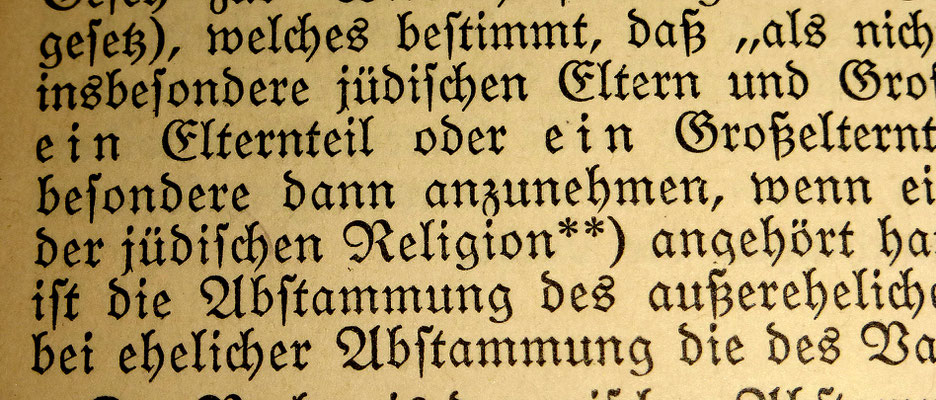 gesetz), welches bestimmt, daß „als nich
insbesondere jüdischen Eltern und Gro
ein Elternteil oder ein Großelternt
besondere dann anzunehmen, wenn ei
der jüdischen Religion**) angehört ha
ist die Abstammung des außereheliche
bei ehelicher Abstammung die des Va